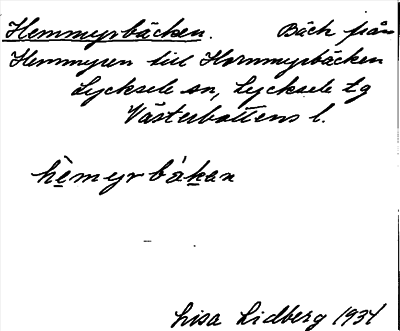 Hemmyrbäcken. Bäck från
Hemmyren till Hornmyrbäcken
Lycksele sn, Lycksele tg
Västerbottens l.
hemyrbäkan
Lisa Lidberg 1934